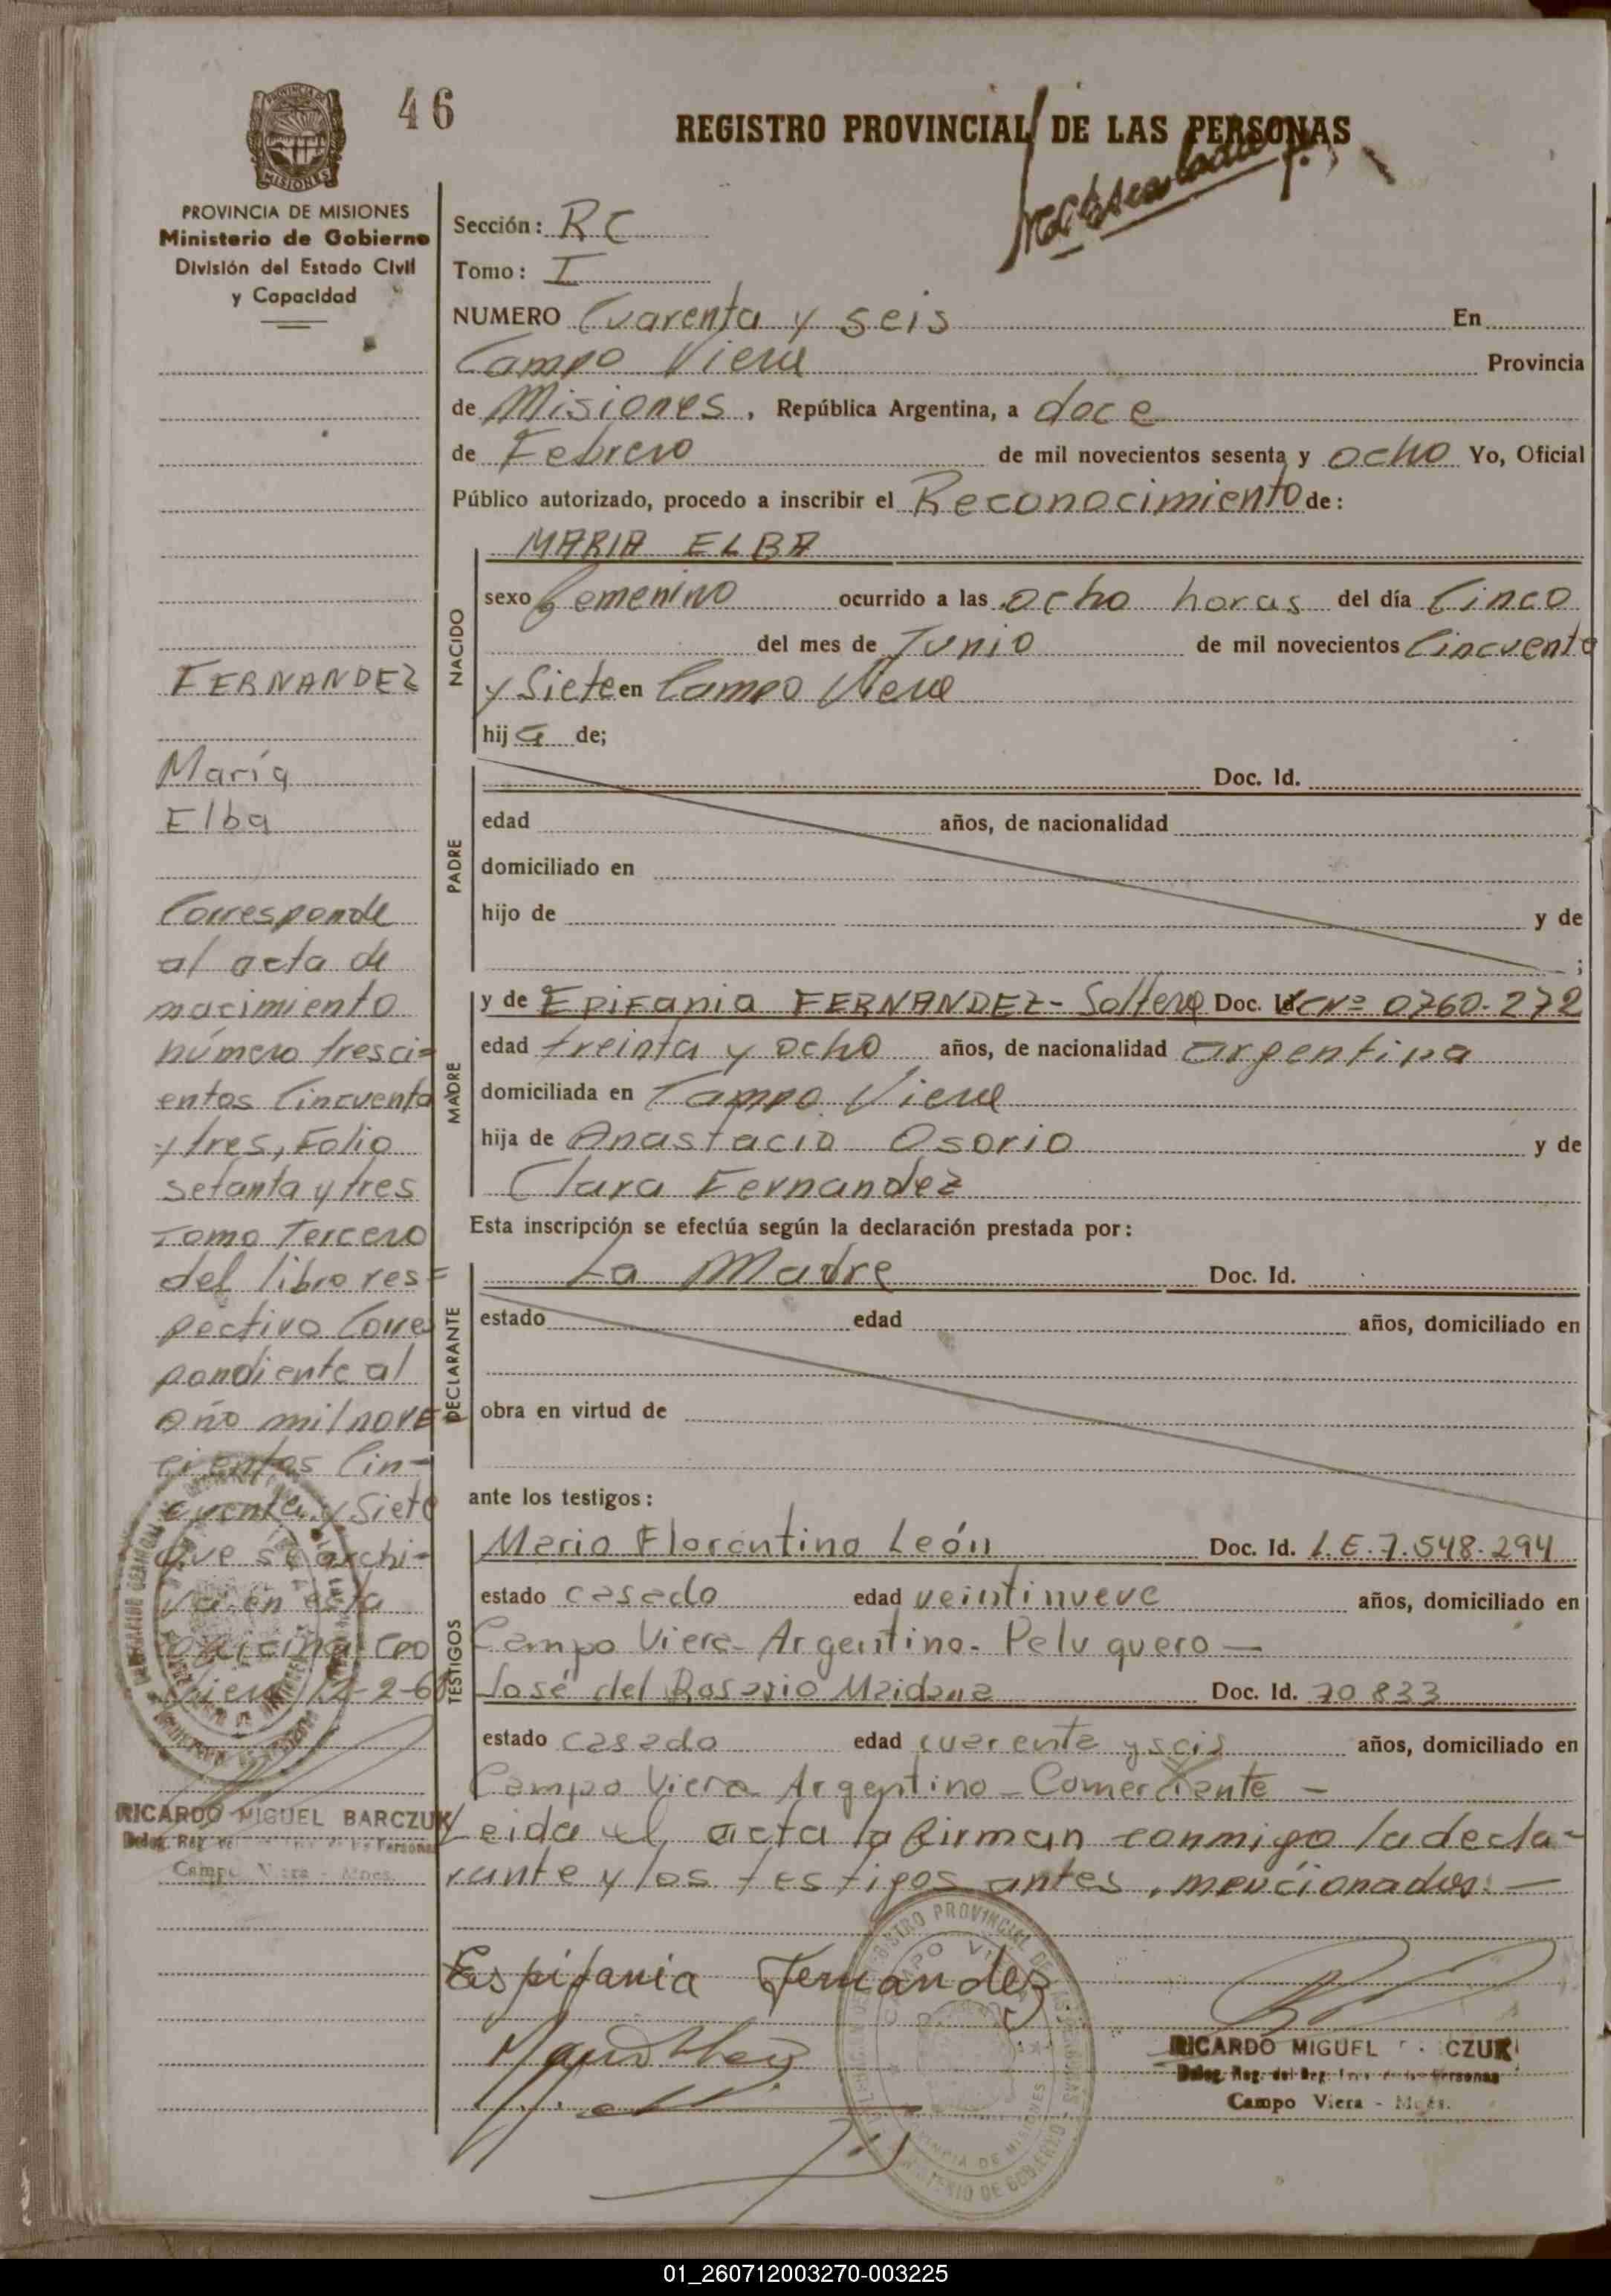 46
REGISTRO PROVINCIAL DE LAS PERSONAS
PROVINCIA DE MISIONES
Ministerio de Gobierno
División del Estado Civil
y Capacidad
Sección: RC
Tomo: I
NUMERO Cuarenta y seis En
Campo Viera Provincia
de Misiones, República Argentina, a doce
de Febrero de mil novecientos sesenta y ocho Yo, Oficial
Público autorizado, procedo a inscribir el Reconocimiento de:
NACIDO
MARIA ELBA
sexo femenino ocurrido a las ocho horas del día Cinco
del mes de Junio de mil novecientos Cincuenta
y Siete en Campo Viera
hija de;
PADRE
Doc. Id.
edad años, de nacionalidad
domiciliado en
hijo de y de
;
MADRE
y de Epifania FERNANDEZ - Soltera Doc. Id. Nº 0760.272
edad treinta y ocho años, de nacionalidad argentina
domiciliada en Campo Viera
hija de Anastacio Osorio y de
Clara Fernandez
Esta inscripción se efectúa según la declaración prestada por:
DECLARANTE
La Madre Doc. Id.
estado edad años, domiciliado en
obra en virtud de
ante los testigos:
TESTIGOS
Mario Florentino León Doc. Id. L.E.7.548.294
estado casado edad veintinueve años, domiciliado en
Campo Viera - Argentino - Peluquero —
José del Rosario Maidana Doc. Id. 70833
estado casado edad cuarenta y seis años, domiciliado en
Campo Viera Argentino - Comerciante -
Leida el acta la firman conmigo la decla-
rante y los testigos antes mencionados. —
Espifania Fernandez
RICARDO MIGUEL CZUK
Campo Viera - Mnes.
FERNANDEZ
María
Elba
Corresponde
al acta de
nacimiento
número tresci=
entos Cincuenta
y tres, Folio
setanta y tres
Tomo Tercero
del libro res=
pectivo Corres
pondiente al
año mil nove=
cientos Cin-
cuenta y Siete
que se archi-
va en esta
oficina Cpo
Viera 12-2-68
RICARDO MIGUEL BARCZUK
Campo Viera - Mnes.
01_260712003270-003225